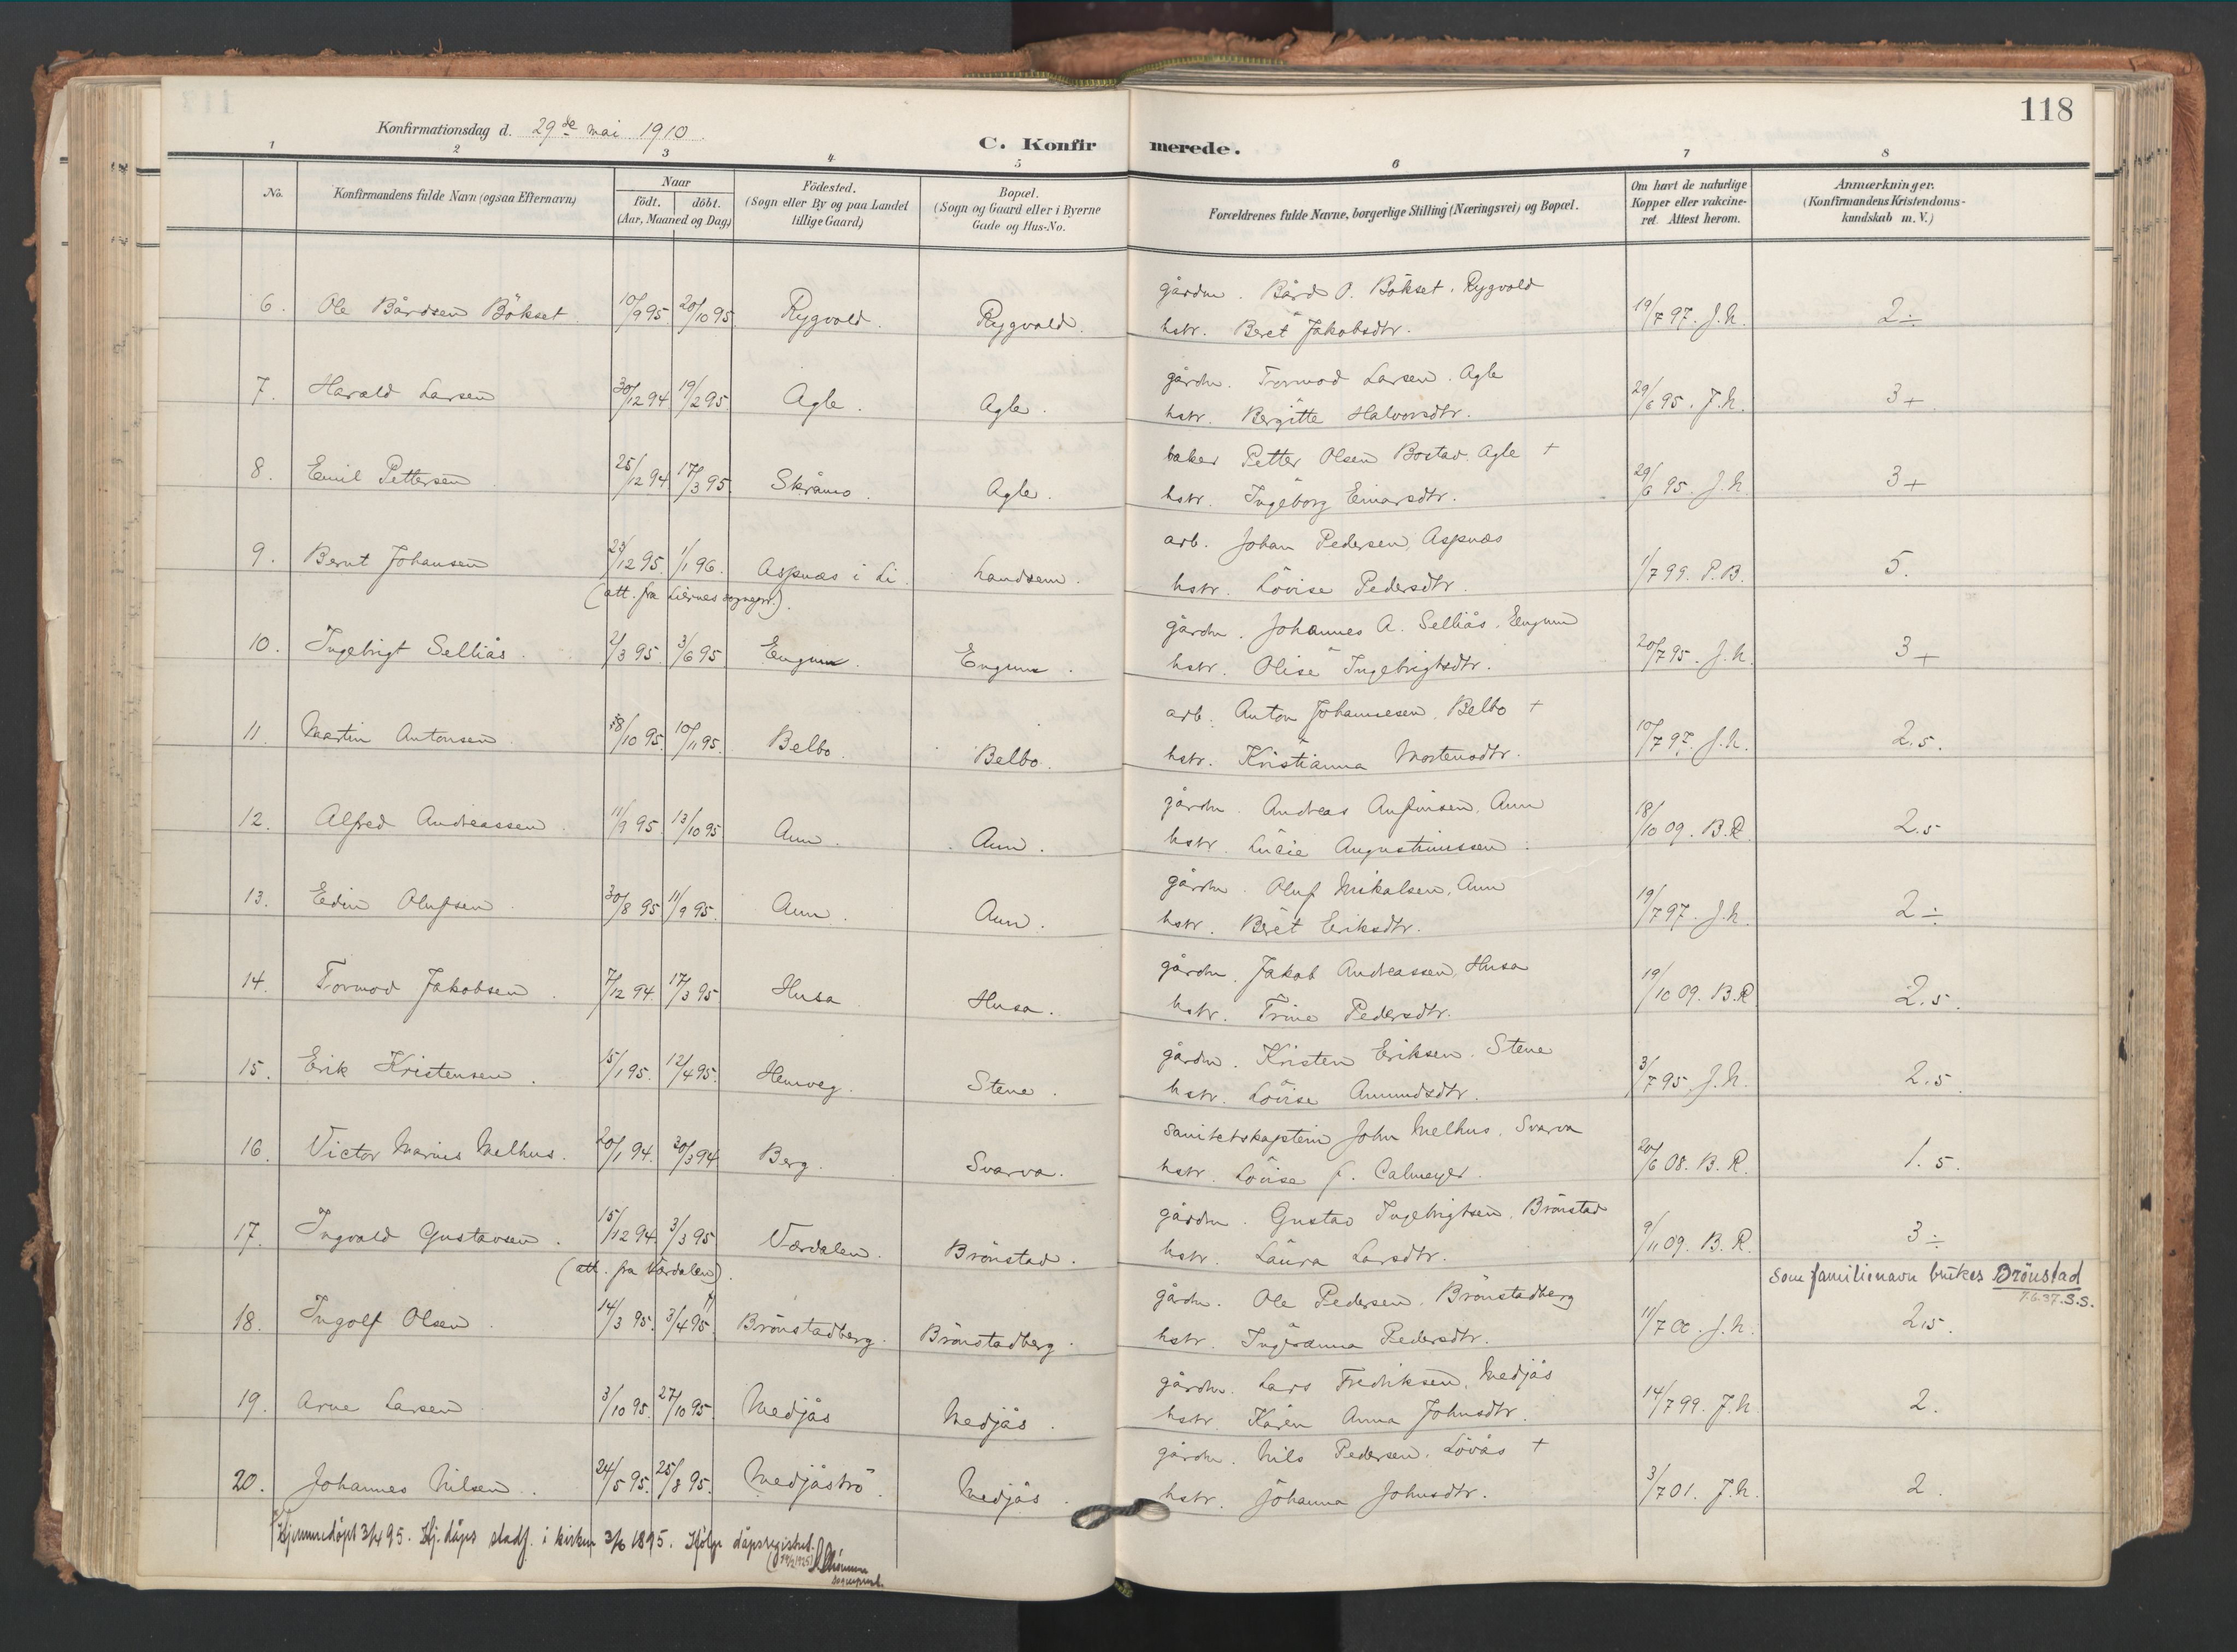 118
Konfirmationsdag d. 29de mai 1910.
C. Konfirmerede.
1 2 3 4 5 6 7 8
No. Konfirmandens fulde Navn (ogsaa Efternavn) Naar födt. döbt. (Aar, Maaned og Dag) Födested. (Sogn eller By og paa Landet tillige Gaard) Bopæl. (Sogn og Gaard eller i Byerne Gade og Hus-No. Forældrenes fulde Navne, borgerlige Stilling (Næringsvei) og Bopæl. Om havt de naturlige Kopper eller vakcineret. Attest herom. Anmærkninger. (Konfirmandens Kristendomskundskab m. V.)
6. Ole Bårdsen Bökset 10/9 95. 20/10 95. Rygvold. Rygvold. gårdm. Bård O. Bökset. Rygvold 19/7 97. J.N. 2÷
hstr. Beret Jakobsdtr.
7. Harald Larsen 30/12 94 19/2 95. Agle. Agle. gårdm. Tormod Larsen. Agle 29/6 95. J.N. 3+
hstr. Bergitte Halvorsdtr.
8. Emil Pettersen 25/12 94 17/3 95. Skråmo. Agle. baker Petter Olsen Bostad. Agle + 29/6 95. J.N. 3+
hstr. Ingeborg Einarsdtr.
9. Bernt Johansen 23/12 95. 1/1 96. Aspnæs i Li. Landsem. arb. Johan Pedersen, Aspnæs 1/7 99. P.B. 5.
(att. fra Liernes sognepr.). hstr. Lovise Pedersdtr.
10. Ingebrigt Selliås. 2/3 95. 3/6 95 Engum. Engum. gårdm. Johannes A. Selliås. Engum 20/7 95. J.N. 3+
hstr. Olise Ingebrigtsdtr.
11. Martin Antonsen 8/10 95. 10/11 95. Belbo. Belbo. arb. Anton Johannesen. Belbo + 10/7 97. J.N. 2.5.
hstr. Kristianna Mortensdtr.
12. Alfred Andreassen 11/9 95. 13/10 95 Aun. Aun. gårdm. Andreas Anfinsen, Aun 18/10 09. B.R. 2.5
hstr. Lucie Augustinussen.
13. Edin Olufsen 30/8 95 11/9 95. Aun. Aun. gårdm. Oluf Mikalsen, Aun 19/7 97. J.N. 2÷
hstr. Beret Eriksdtr.
14. Tormod Jakobsen 7/12 94. 17/3 95 Husa Husa. gårdm. Jakob Andreassen, Husa 19/10 09. B.R. 2.5.
hstr. Trine Pedersdtr.
15. Erik Kristensen. 15/1 95. 12/4 95. Hemveg. Stene. gårdm. Kristen Eriksen. Stene 3/7 95. J.N. 2.5.
hstr. Lovise Amundsdtr.
16. Victor Marius Melhus. 20/1 94. 30/3 94 Berg. Svarva. sanitetskaptein John Melhus. Svarva 20/6 08. B.R. 1.5.
hstr. Lovise f. Calmeyer.
17. Ingvald Gustavsen. 15/12 94. 3/3 95 Værdalen. Brönstad. gårdm. Gustav Ingebrigtsen. Brönstad 9/11 09. B.R. 3÷
(att. fra Værdalen). hstr. Laura Larsdtr.
Som familienavn brukes Brönstad
7.6.37. S.S.
18. Ingolf Olsen. 14/3 95. 3/4 95. Brönstadberg. Brönstadberg. gårdm. Ole Pedersen. Brönstadberg 11/7 00. J.N. 2.5.
hstr. Ingeranna Pedersdtr.
19. Arne Larsen 3/10 95. 27/10 95. Medjås Medjås. gårdm. Lars Fredriksen, Medjås 14/7 99. J.N. 2.
hstr. Karen Anna Johnsdtr.
20. Johannes Nilsen. 24/5 95. 25/8 95. Medjåströ. Medjås. gårdm. Nils Pedersen. Lövås + 3/7 01. J.N. 2.
hstr. Johanna Johnsdtr.
Hjemmedöpt 3/4 95. Hj. dåps stadf. i kirken 3/6 1895. Ifölge dåpsregistret.
sogneprest.